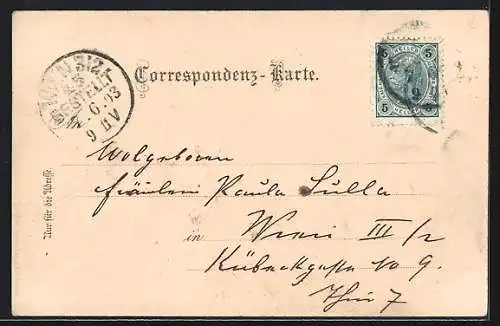 Correspondenz-Karte.
5 HELLER 5
5 5
HELLER
6. 03
9 V
Wolgeboren
Fräulein Paula Sulla
in Wien III/2
Kübeckgasse No 9.
Thür 7
Nur für die Adresse.